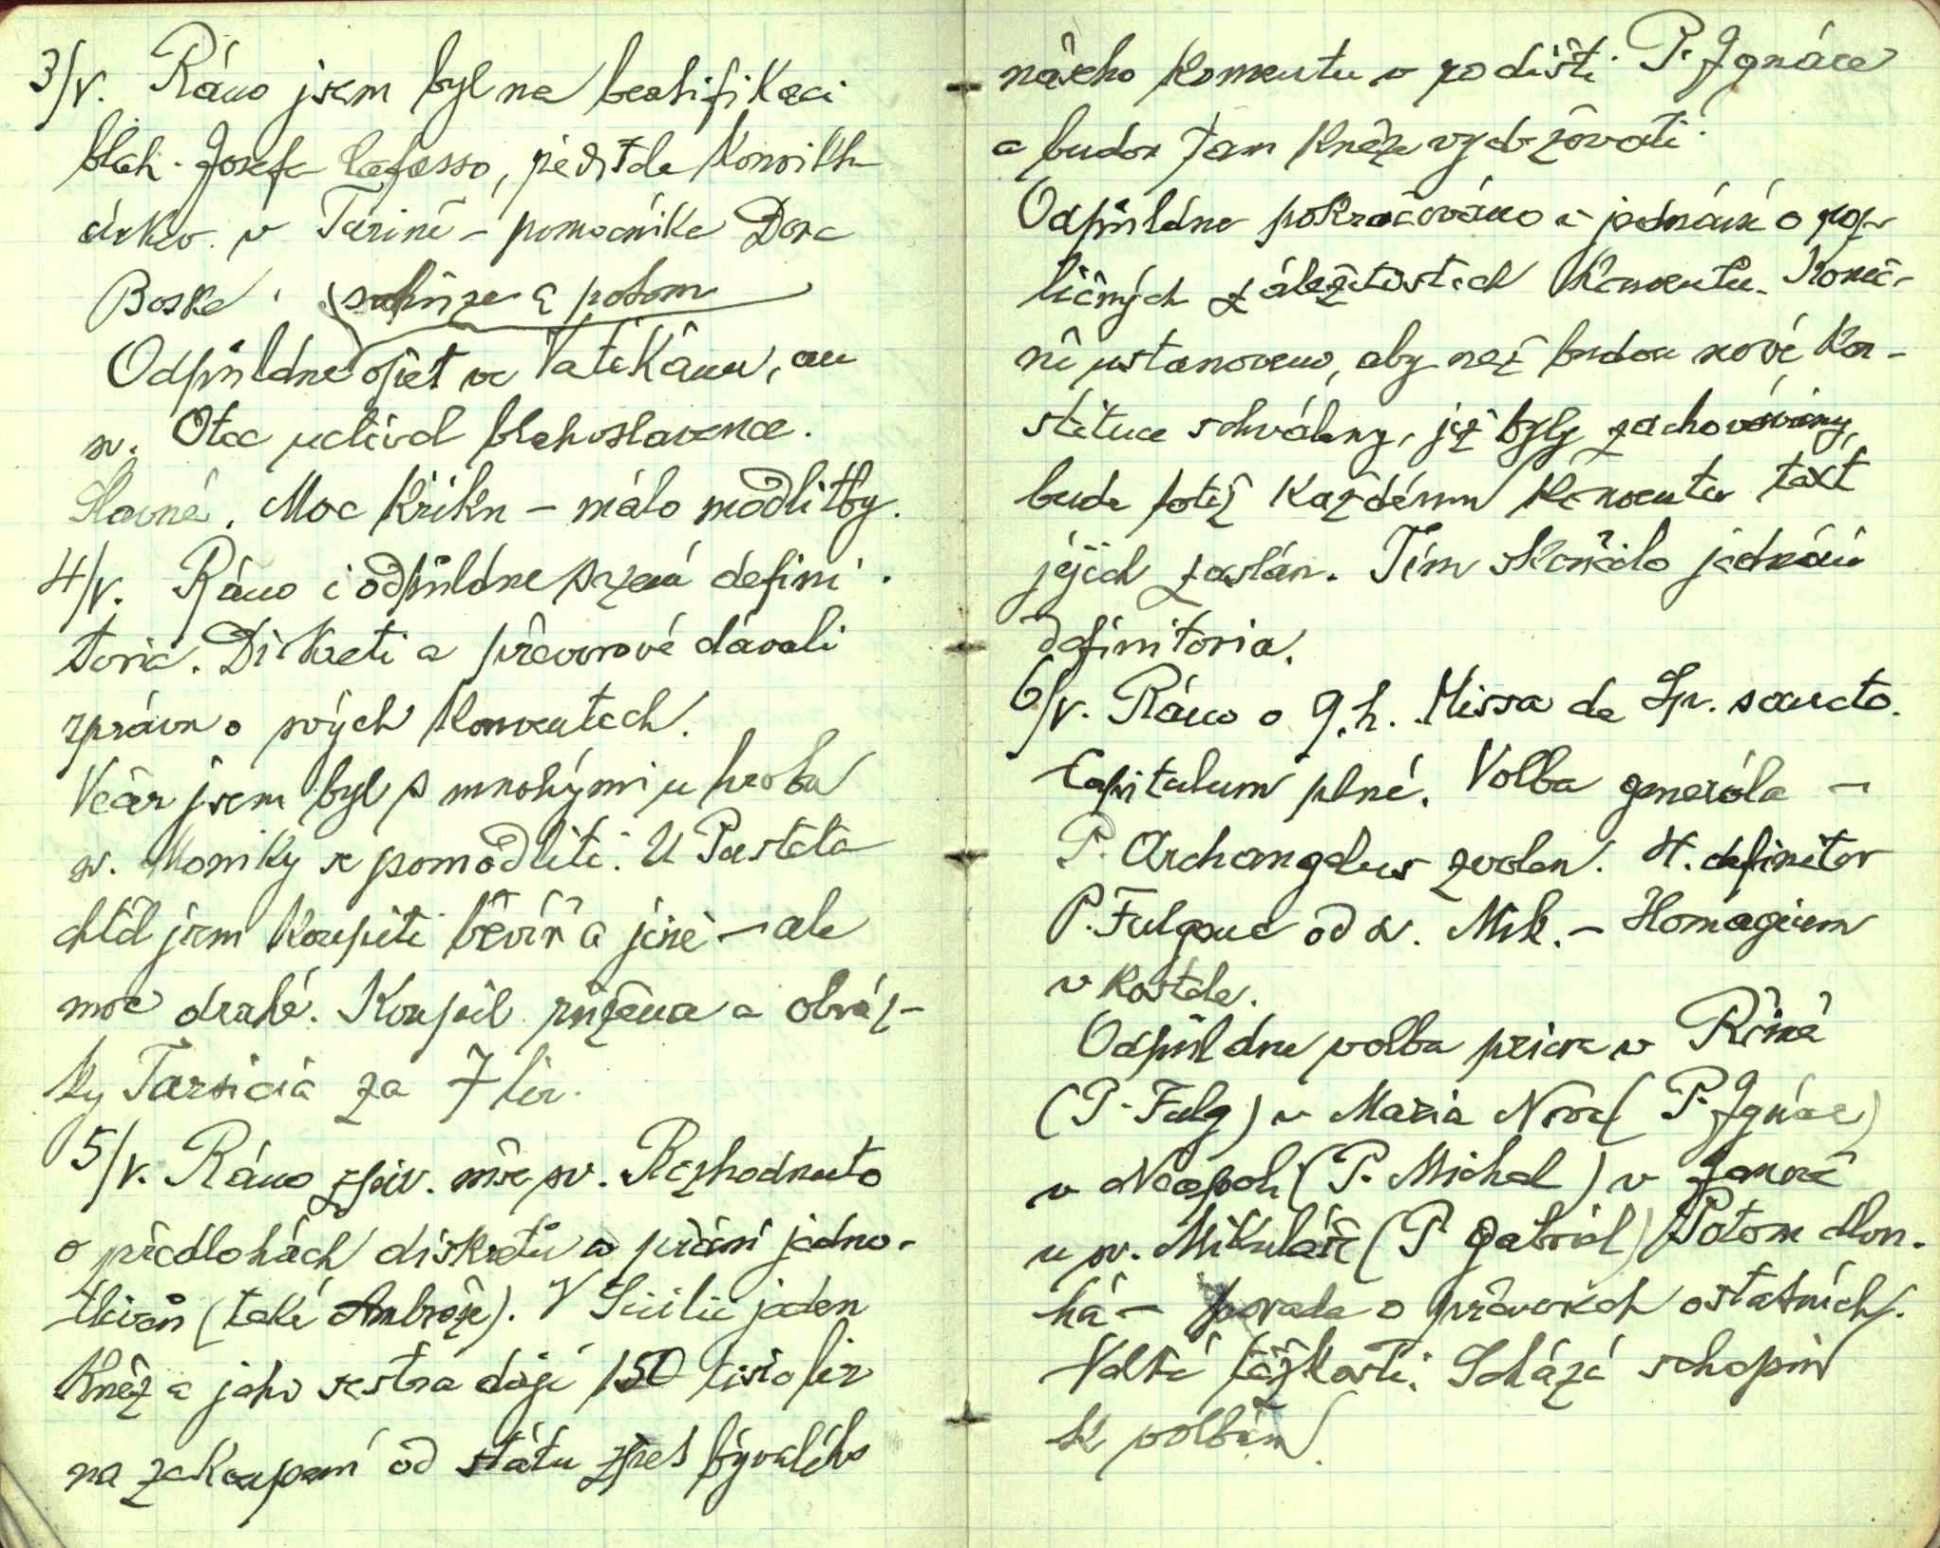 3/V. Ráno jsem byl na beatifikaci
blah. Josefa Cafasso, ředitele konviktu
církev. v Turině - pomocníka Dona
Boska. schůze a potom
Odpůldne opět ve Vatikánu, an
sv. Otec uctíval blahoslavence.
Slavné. Moc křiku - málo modlitby.
4/V. Ráno i odpůldne sezení defini-
toria. Diskreti a převorové dávali
zprávu o svých konventech.
Večer jsem byl s mnohými u hrobu
sv. Moniky se pomodliti. U Pusteta
chtěl jsem koupiti brevíř a jiné - ale
moc drahé. Koupil růžence a obráz-
ky Tarsicia za 7 lir.
5/V. Ráno zpív. mše sv. Rozhodnuto
o předlohách diskretů a přání jedno-
tlivců (také Ambrože). V Sicilii jeden
kněz a jeho sestra dají 150 tisíc lir
na zakoupení od státu zpět bývalého
našeho konventu v rodišti P. Ignáce
a budou tam kněze vydržovati.
Odpůldne pokračováno v jednání o roz-
ličných záležitostech konventu. Koneč-
ně ustanoveno, aby než budou nové kon-
stituce schváleny, již byly zachovávány,
bude totiž každému konventu text
jejich zaslán. Tím skončilo jednání
definitoria.
6/V. Ráno o 9.h. Missa de Sp. sancto.
Capitulum plné. Volba generála -
P. Archangelus zvolen. H. definitor
P. Fulgenc od sv. Mik. - Homagium
v kostele.
Odpůldne volba priora v Římě
(P. Fulg) v Maria Nova (P. Ignác)
v Neapoli (P. Michel) v Janově
u sv. Mikuláše (P Gabriel) Potom dlou-
há - porada o převorech ostatních.
Velké těžkosti. Schází schopní
k volbám.